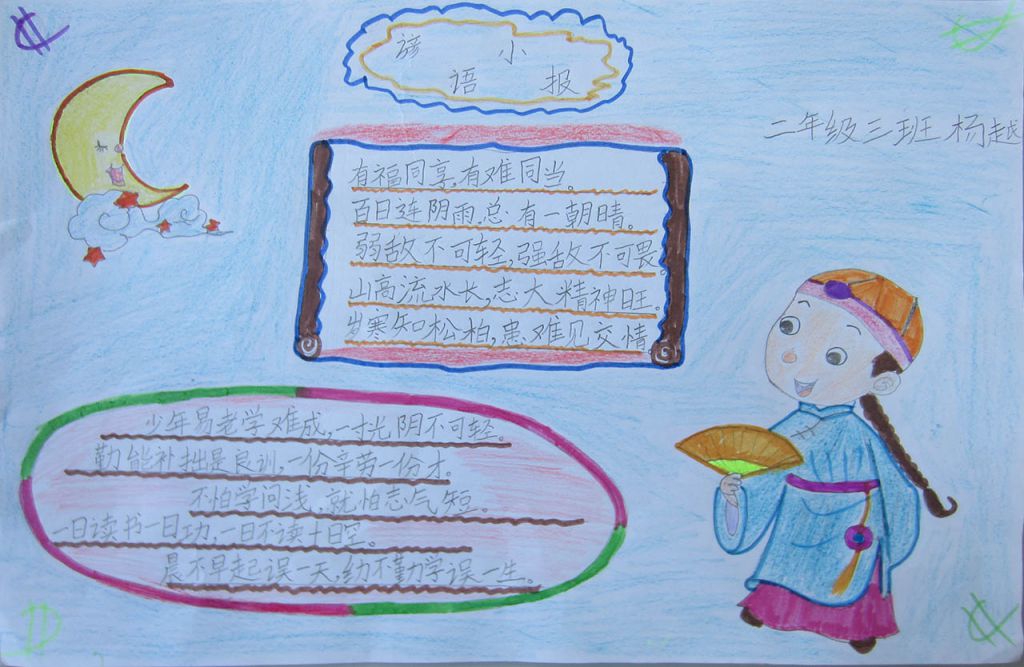 谚语小报
二年级三班 杨越
有福同享,有难同当。
百日连阴雨,总有一朝晴。
弱敌不可轻,强敌不可畏。
山高流水长,志大精神旺。
岁寒知松柏,患难见交情。
少年易老学难成,一寸光阴不可轻。
勤能补拙是良训,一份辛劳一份才。
不怕学问浅,就怕志气短。
一日读书一日功,一日不读十日空。
晨不早起误一天,幼不勤学误一生。